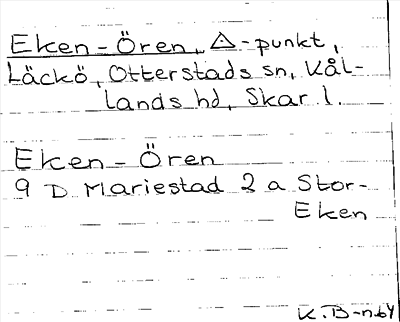 Eken-Ören, △-punkt,
Läckö, Otterstads sn, Kål-
lands hd, Skar. l.
Eken-Ören
9 D Mariestad 2 a Stor-
Eken
K.B-n 64